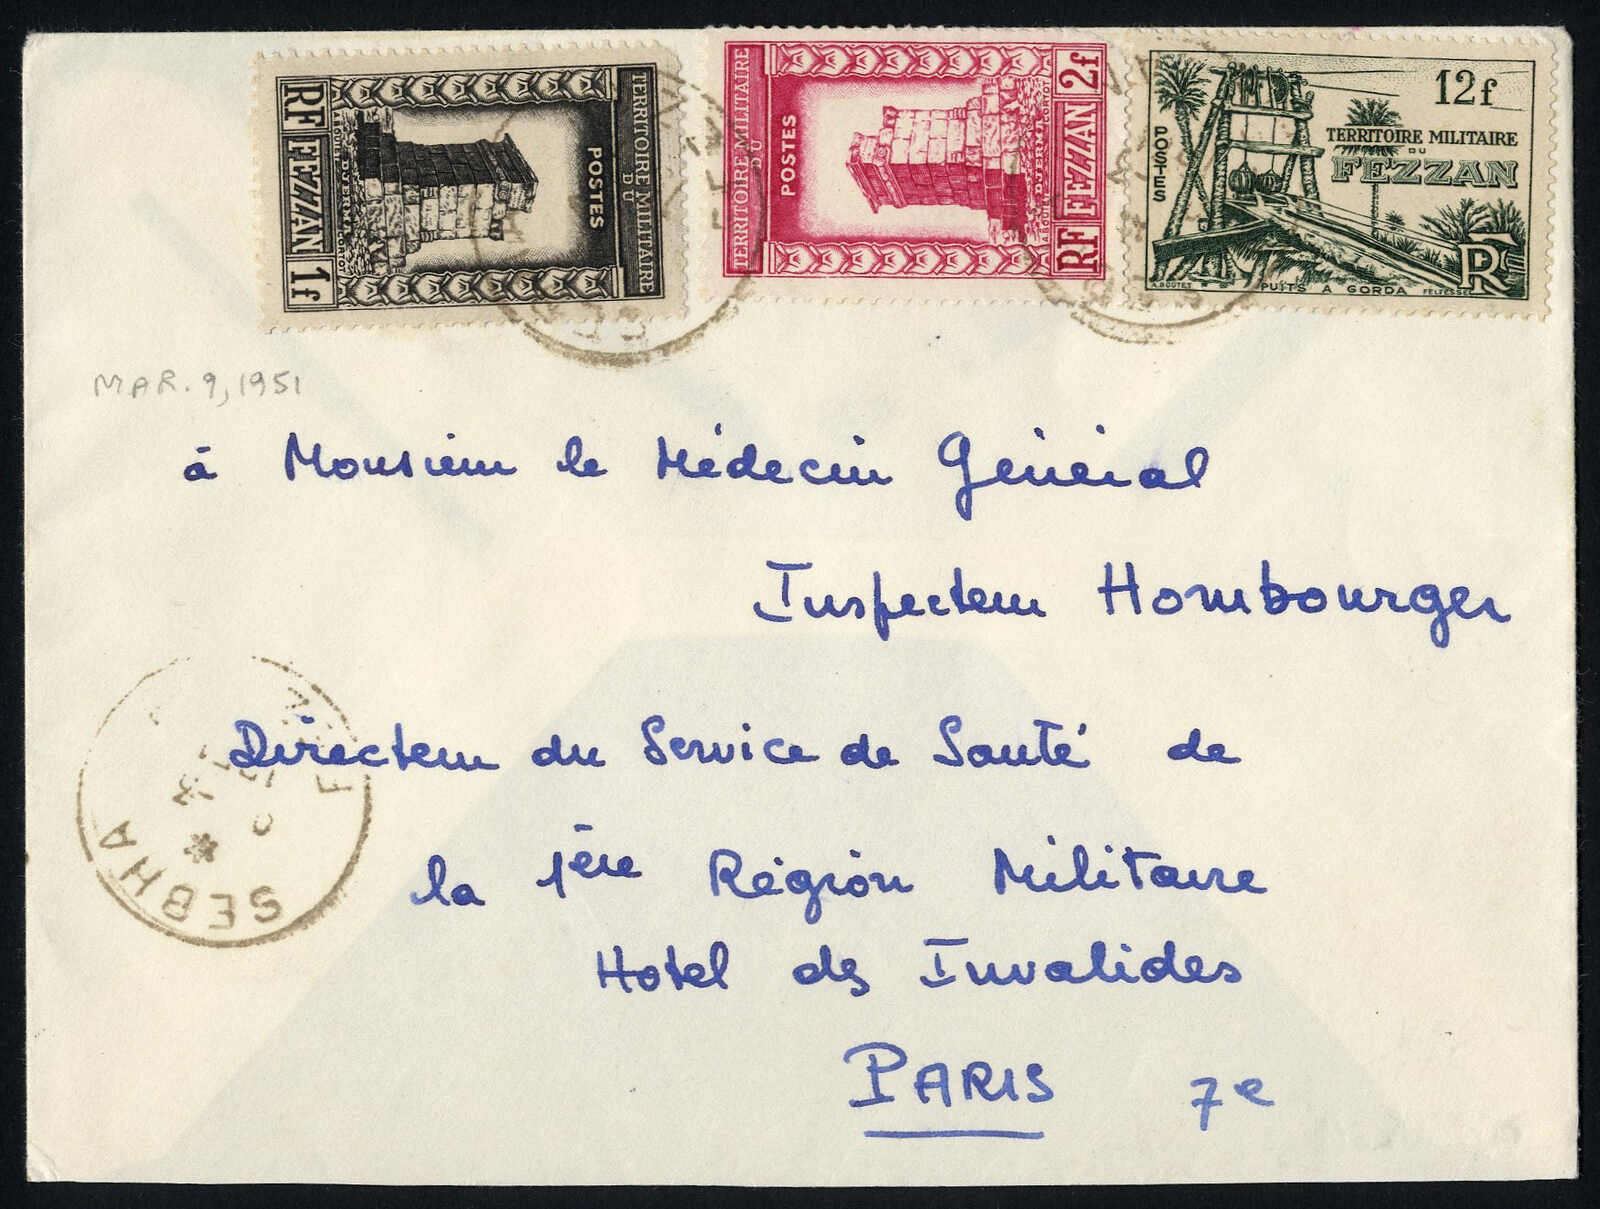 TERRITOIRE MILITAIRE
DU
POSTES
DJERMA
RF FEZZAN 1f
TERRITOIRE MILITAIRE
DU
POSTES
DJERMA
RF FEZZAN 2f
12f
POSTES
TERRITOIRE MILITAIRE
DU
FEZZAN
RF
PUITS A GORDA
MAR. 9, 1951
à Monsieur le Médecin Général
Inspecteur Hombourger
Directeur du Service de Santé de
la 1ère Région Militaire
Hotel des Invalides
PARIS 7e
SEBHA